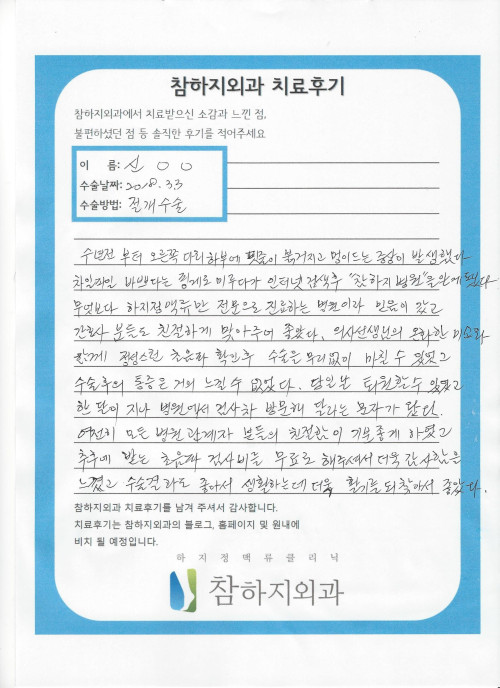 참하지외과 치료후기
참하지외과에서 치료받으신 소감과 느낀 점,
불편하셨던 점 등 솔직한 후기를 적어주세요
이 름: 신 ○ ○
수술날짜: 2018. 3.3
수술방법: 절개수술
수년전 부터 오른쪽 다리 하부에 핏줄이 붉거지고 멍이드는 증상이 발생했다
차일피일 바쁘다는 핑계로 미루다가 인터넷 검색후 "참하지병원"을 알게 됐다
무엇보다 하지정맥류만 전문으로 진료하는 병원이라 믿음이 갔고
간호사 분들도 친절하게 맞아주어 좋았다. 의사선생님의 온화한 미소와
함께 정성스런 초음파 확인후 수술을 무리없이 마칠 수 있었고
수술후의 통증은 거의 느낄수 없었다. 당일날 퇴원할수 있었고
한 달이 지나 병원에서 검사차 방문해 달라는 문자가 왔다.
여전히 모든 병원 관계자 분들의 친절함이 기분좋게 하였고
추후에 받는 초음파 검사비를 무료로 해주셔서 더욱 감사함을
느꼈고 수술결과도 좋아서 생활하는데 더욱 활기를 되찾아서 좋았다.
참하지외과 치료후기를 남겨 주셔서 감사합니다.
치료후기는 참하지외과의 블로그, 홈페이지 및 원내에
비치 될 예정입니다.
하지정맥류클리닉
참하지외과